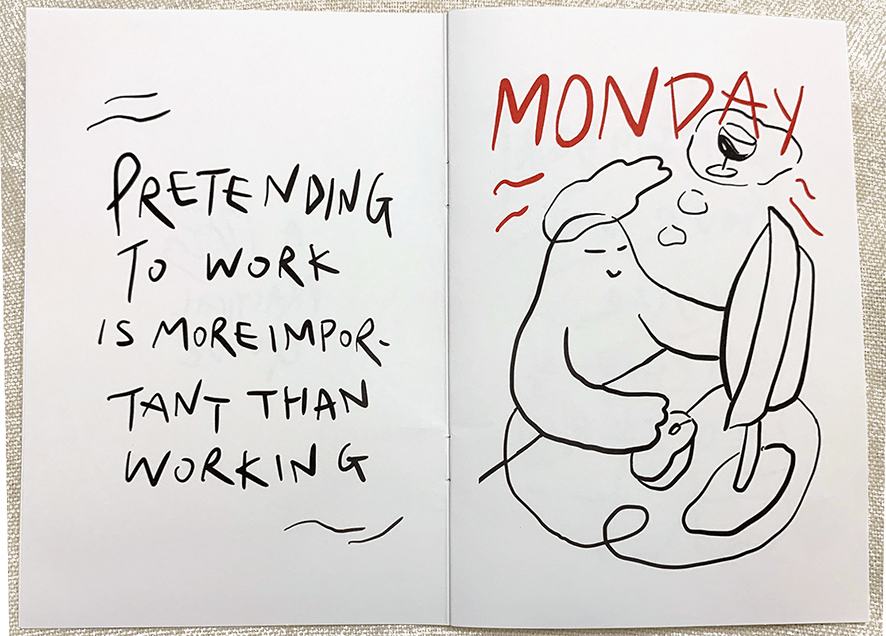 PRETENDING
TO WORK
IS MORE IMPOR-
TANT THAN
WORKING
MONDAY